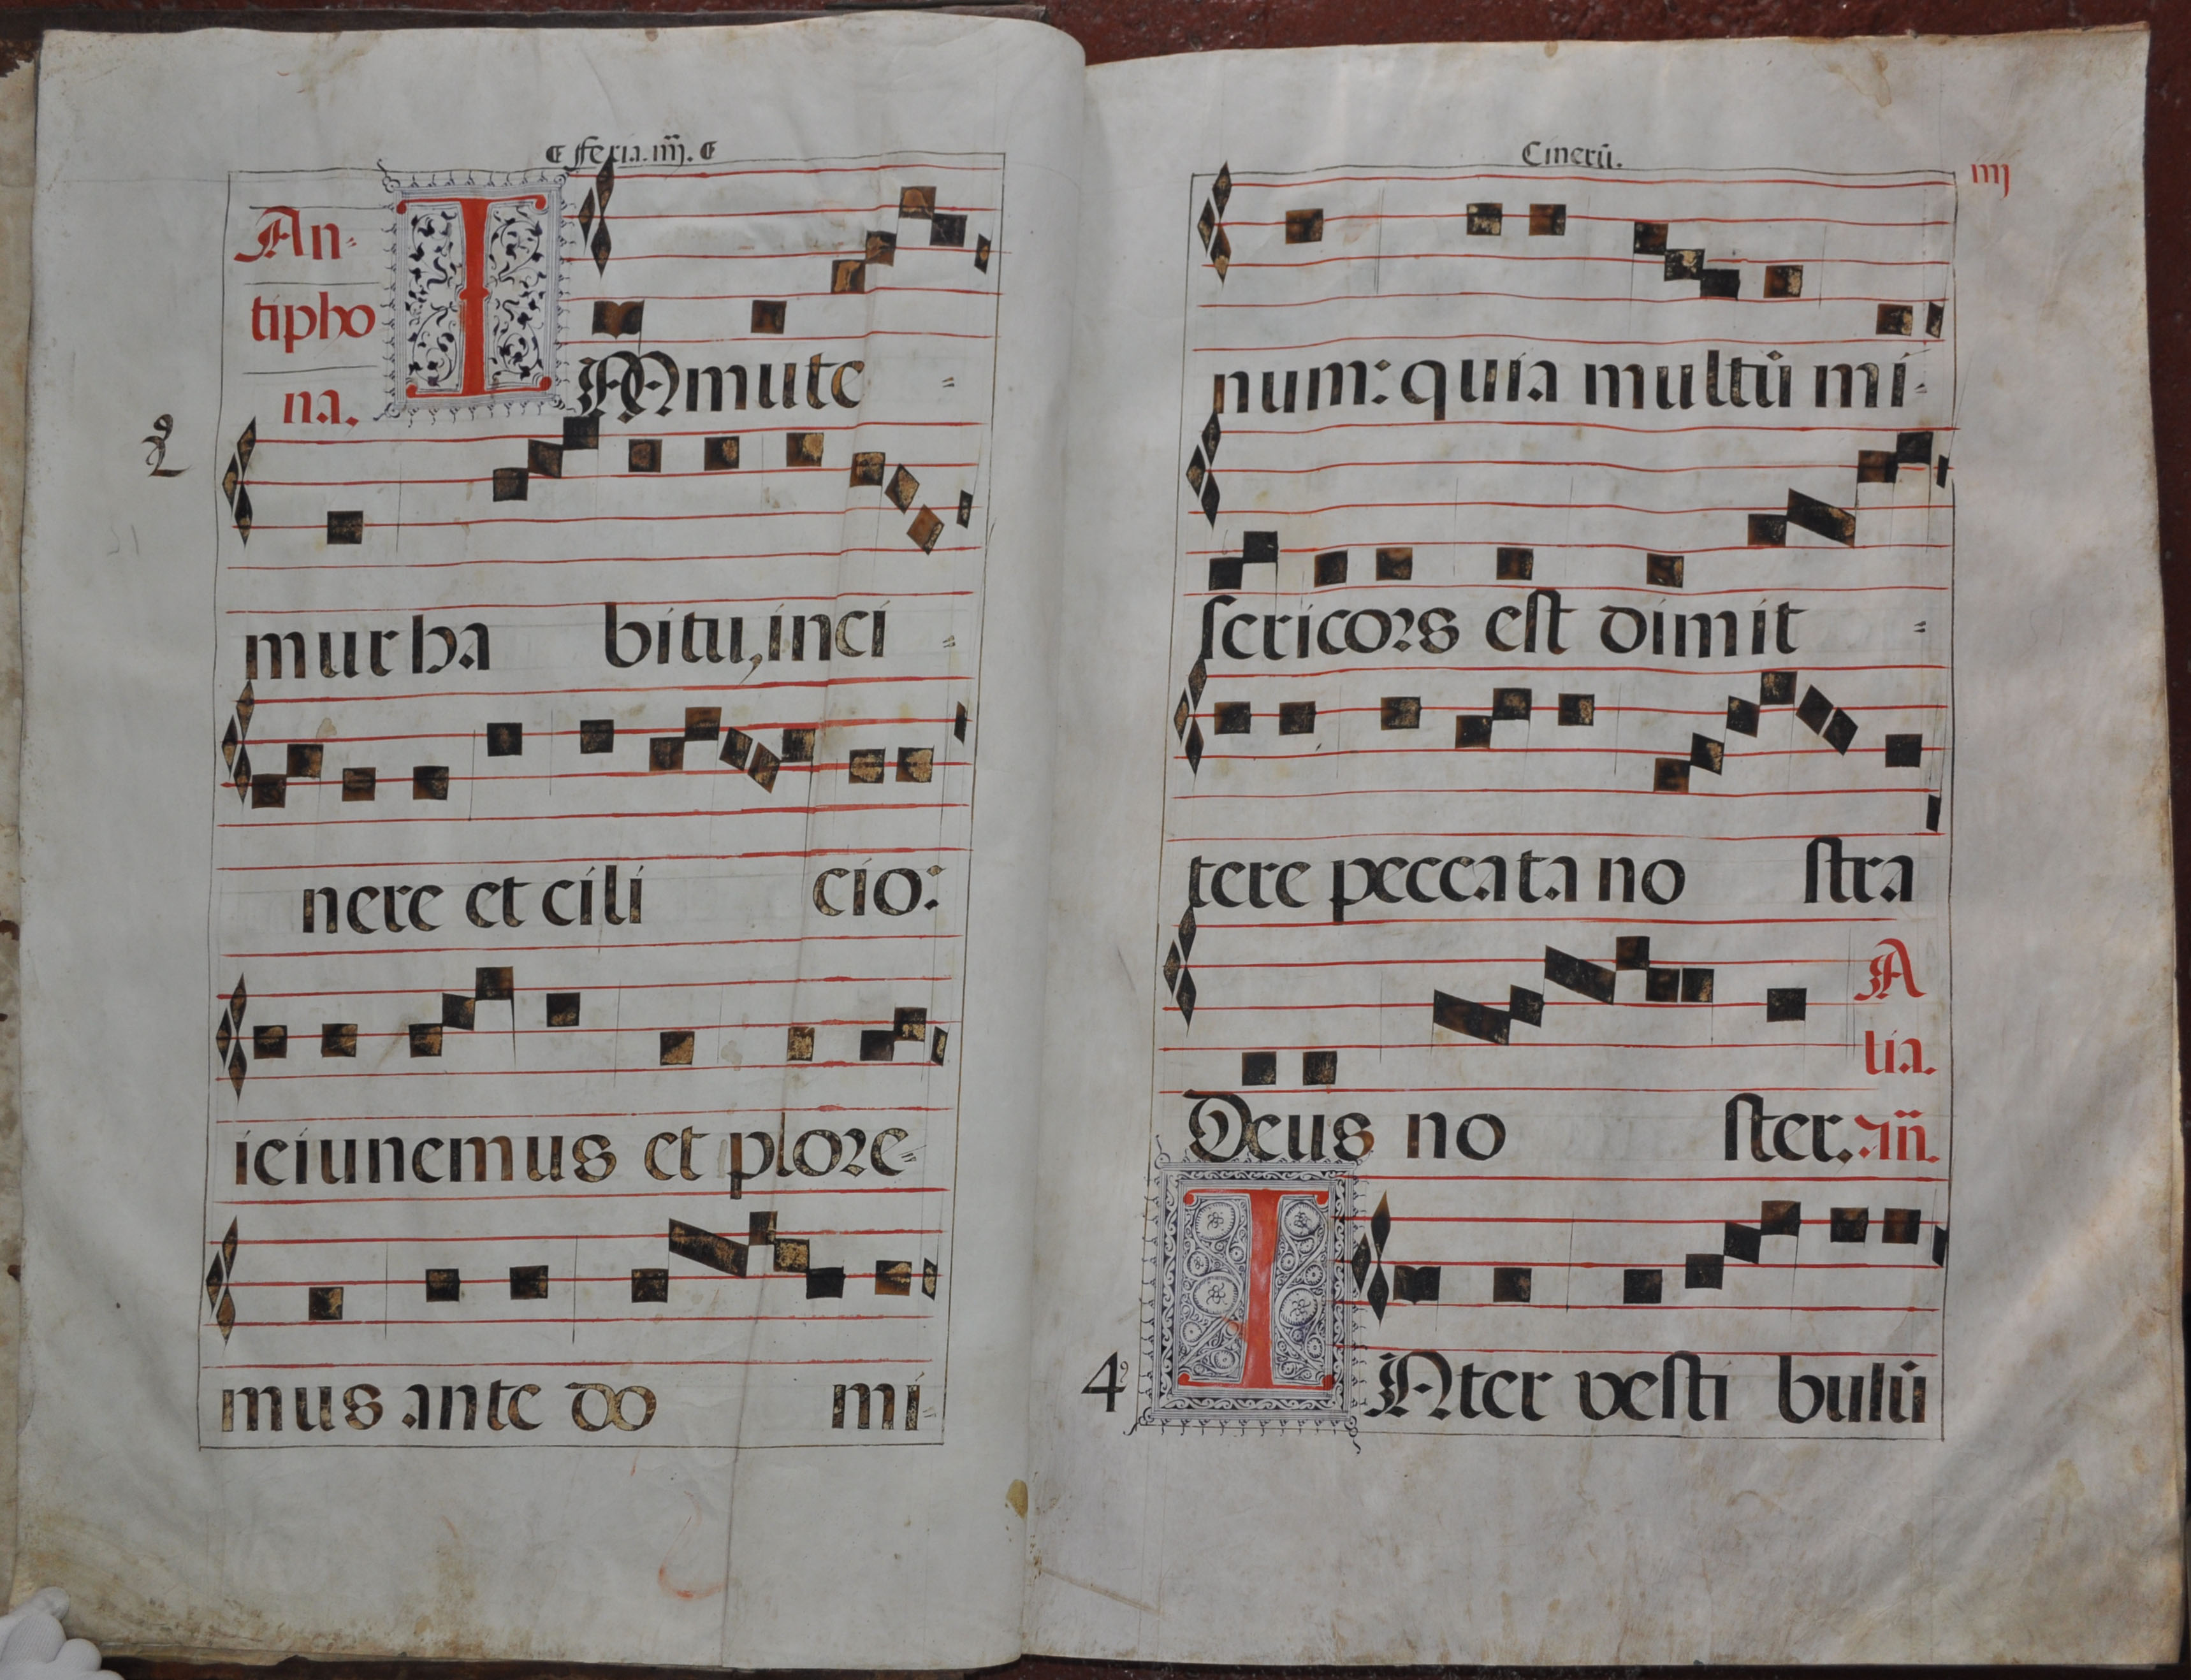 feria. iiij.
An-
tipho
na.
IMmute =
2
mur ha bitu, inci =
nere et cili cio:
ieiunemus et plore=
mus ante do mi=
Cinerū.
iiij
num: quia multū mi-
sericors est dimit =
tere peccata no stra
A
lia.
Deus no ster. añ.
4
INter vesti bulū